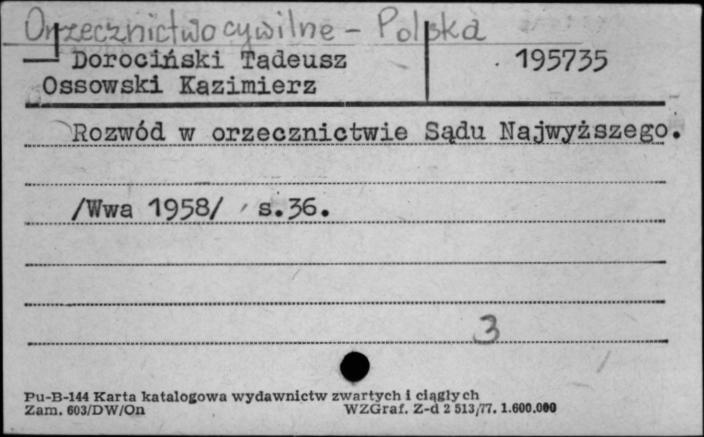 Orzecznictwo cywilne - Polska
Dorociński Tadeusz 195735
Ossowski Kazimierz
Rozwód w orzecznictwie Sądu Najwyższego.
/Wwa 1958/ s.36.
3
Pu-B-144 Karta katalogowa wydawnictw zwartych i ciągłych
Zam. 603/DW/On WZGraf. Z-d 2 513/77. 1.600.000